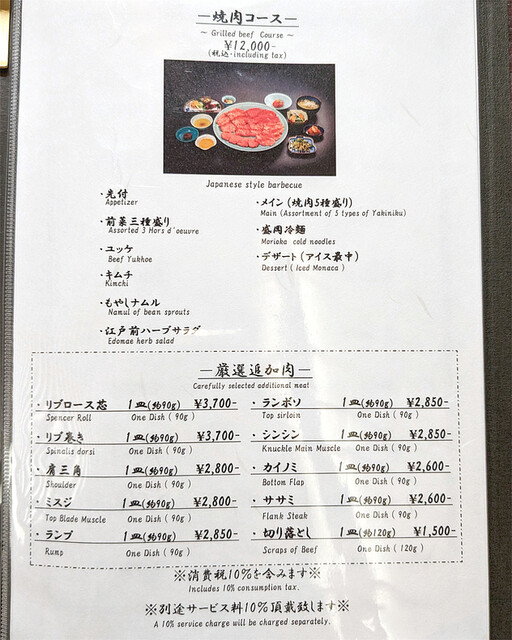 —焼肉コース—
~ Grilled beef Course ~
¥12,000-
(税込・including tax)
Japanese style barbecue
・先付
Appetizer
・前菜三種盛り
Assorted 3 Hors d'oeuvre
・ユッケ
Beef Yukhoe
・キムチ
Kimchi
・もやしナムル
Namul of bean sprouts
・江戸前ハーブサラダ
Edomae herb salad
・メイン(焼肉5種盛り)
Main (Assortment of 5 types of Yakiniku)
・盛岡冷麺
Morioka cold noodles
・デザート(アイス最中)
Dessert ( Iced Monaca )
—厳選追加肉—
Carefully selected additional meat
・リブロース芯 1皿(約90g) ¥3,700-
Spencer Roll One Dish ( 90g )
・リブ巻き 1皿(約90g) ¥3,700-
Spinalis dorsi One Dish ( 90g )
・肩三角 1皿(約90g) ¥2,800-
Shoulder One Dish ( 90g )
・ミスジ 1皿(約90g) ¥2,800-
Top Blade Muscle One Dish ( 90g )
・ランプ 1皿(約90g) ¥2,850-
Rump One Dish ( 90g )
・ランボソ 1皿(約90g) ¥2,850-
Top sirloin One Dish ( 90g )
・シンシン 1皿(約90g) ¥2,850-
Knuckle Main Muscle One Dish ( 90g )
・カイノミ 1皿(約90g) ¥2,600-
Bottom Flap One Dish ( 90g )
・ササミ 1皿(約90g) ¥2,600-
Flank Steak One Dish ( 90g )
・切り落とし 1皿(約120g) ¥1,500-
Scraps of Beef One Dish ( 120g )
※消費税10%を含みます※
Includes 10% consumption tax.
※別途サービス料10%頂戴致します※
A 10% service charge will be charged separately.